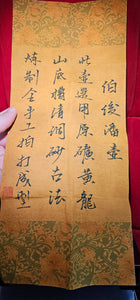 伯俊潘壺
此壺選用原礦黃龍
山底槽清調砂古法
煉制全手工拍打成型